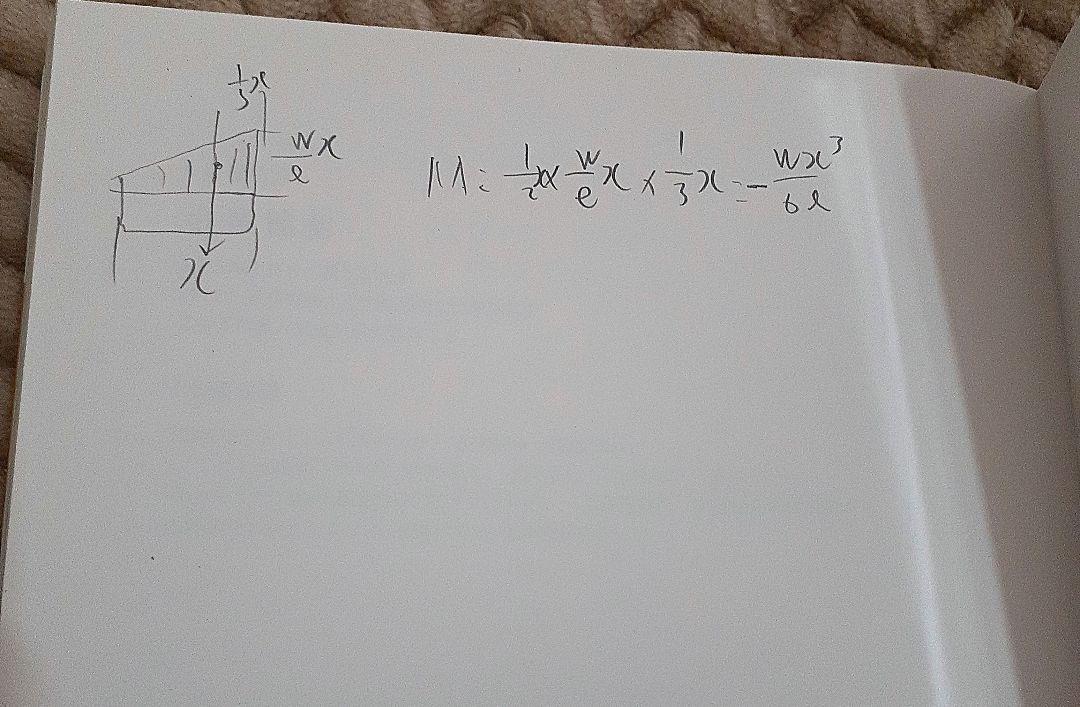 1/3 x
wx/l
x
M = 1/2 x × w/l x × 1/3 x = - wx³/6l